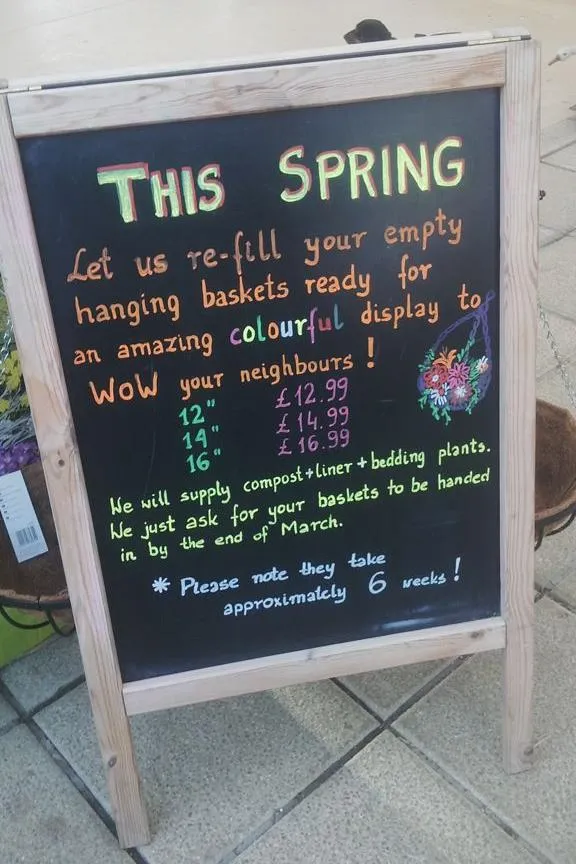 THIS SPRING
Let us re-fill your empty
hanging baskets ready for
an amazing colourful display to
WOW your neighbours !
12" £12.99
14" £14.99
16" £16.99
We will supply compost+liner+bedding plants.
We just ask for your baskets to be handed
in by the end of March.
* Please note they take
approximately 6 weeks!